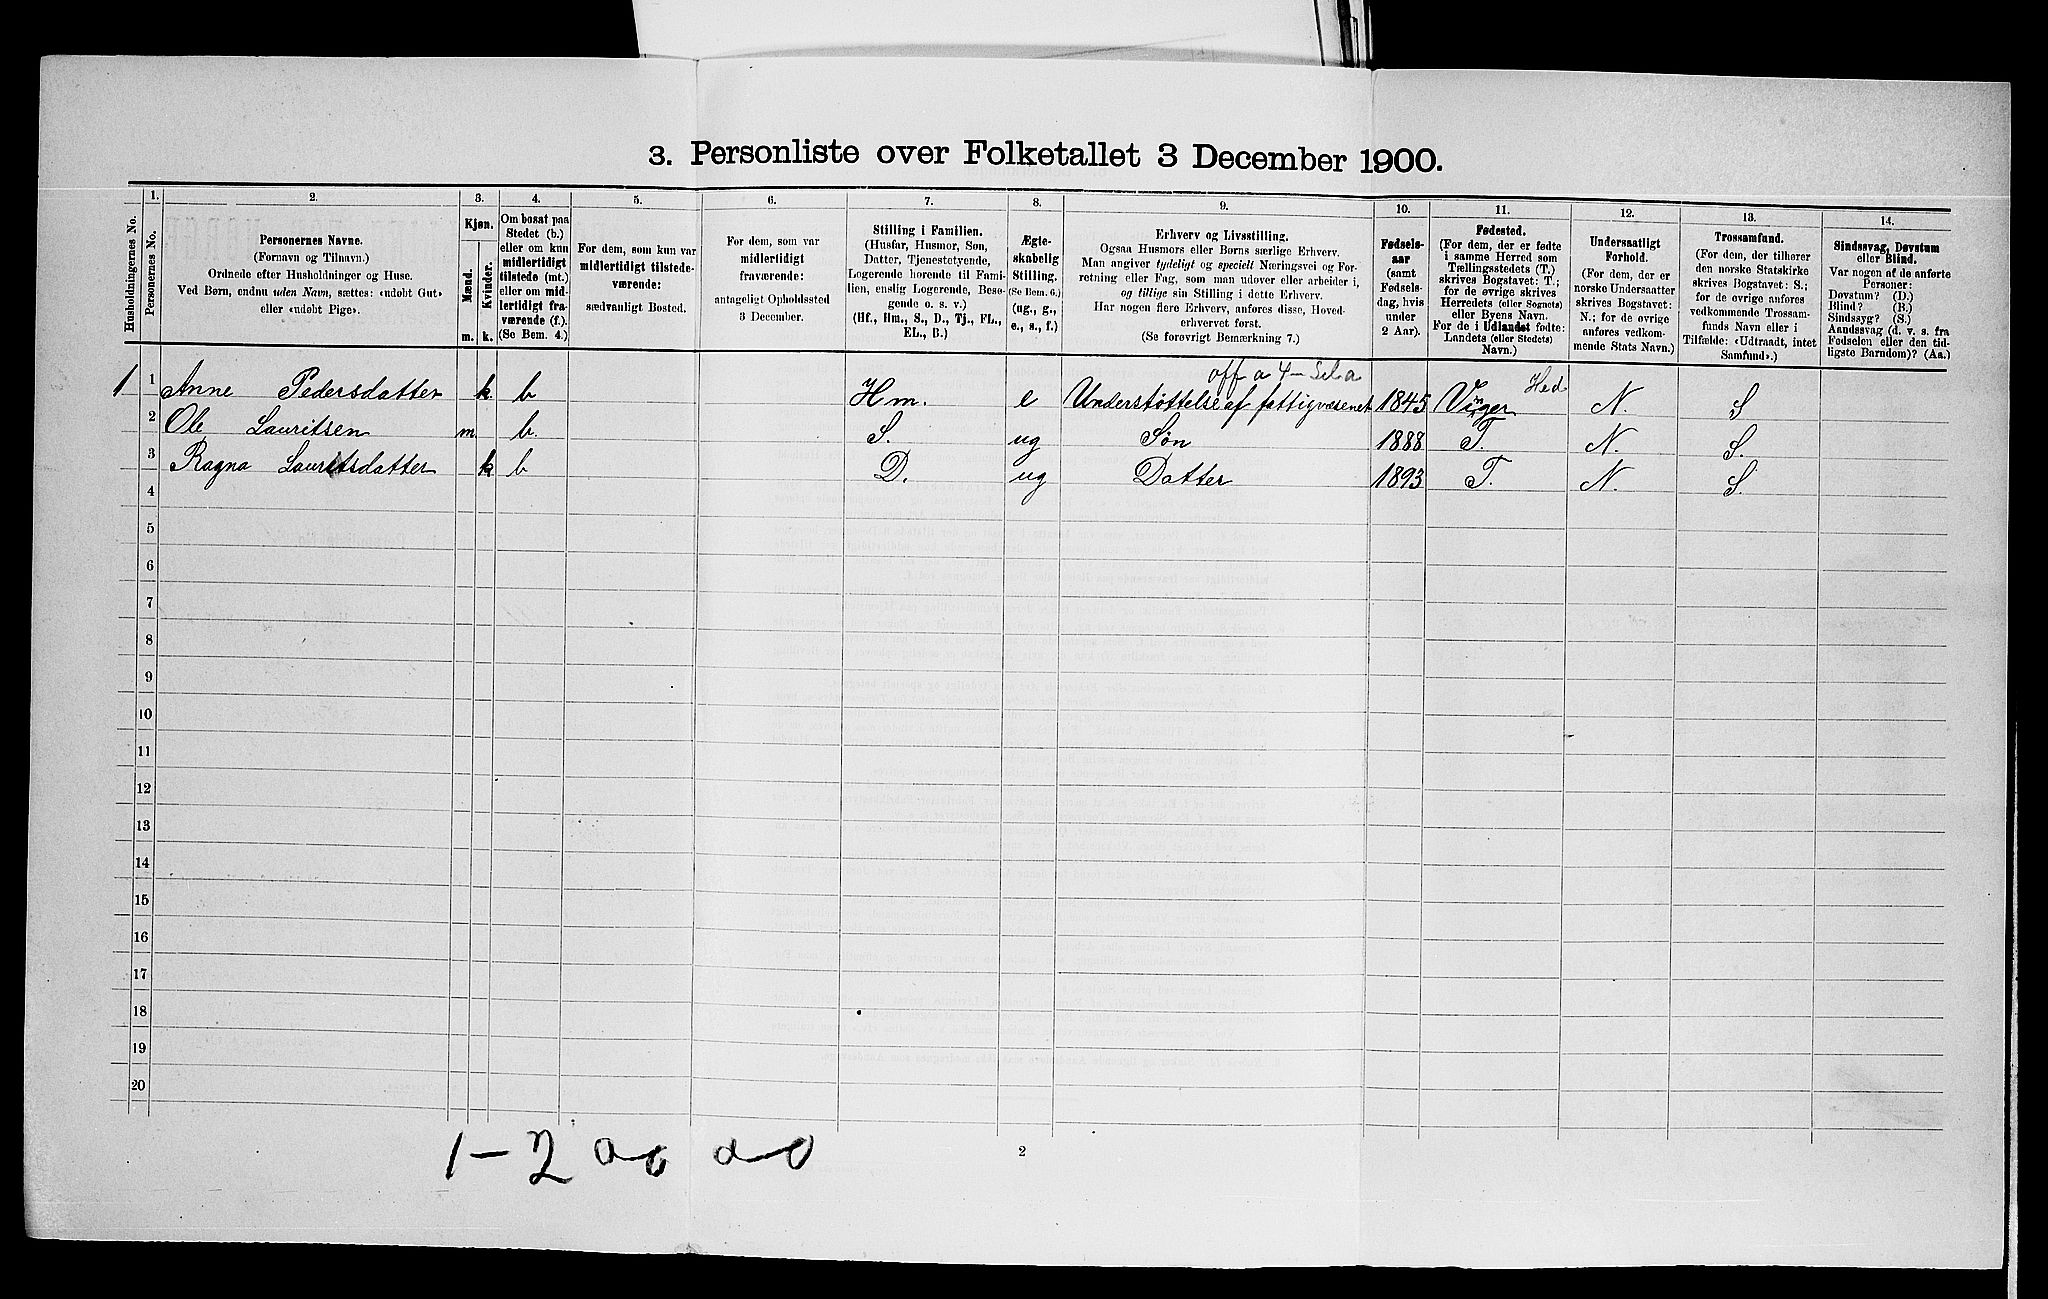 3. Personliste over Folketallet 3 December 1900.
Husholdningernes No.
1.
Personernes No.
2.
Personernes Navne.
(Fornavn og Tilnavn.)
Ordnede efter Husholdninger og Huse.
Ved Børn, endnu uden Navn, sættes: «udøbt Gut»
eller «udøbt Pige».
3.
Kjøn.
Mænd.
Kvinder.
m. k.
4.
Om bosat paa
Stedet (b.)
eller om kun
midlertidigt
tilstede (mt.)
eller om mid-
lertidigt fra-
værende (f.).
(Se Bem. 4.)
5.
For dem, som kun var
midlertidigt tilstede-
værende:
sædvanligt Bosted.
6.
For dem, som var
midlertidigt
fraværende:
antageligt Opholdssted
3 December.
7.
Stilling i Familien.
(Husfar, Husmor, Søn,
Datter, Tjenestetyende,
Logerende hørende til Fami-
lien, enslig Logerende, Besø-
gende o. s. v.)
(Hf., Hm., S., D., Tj., FL.,
EL., B.)
8.
Ægte-
skabelig
Stilling.
(Se Bem. 6.)
(ug., g.,
e., s., f.)
9.
Erhverv og Livsstilling.
Ogsaa Husmors eller Børns særlige Erhverv.
Man angiver tydeligt og specielt Næringsvei og For-
retning eller Fag, som man udover eller arbeider i,
og tillige sin Stilling i dette Erhverv.
Har nogen flere Erhverv, anføres disse, Hoved-
erhvervet først.
(Se forøvrigt Bemærkning 7.)
10.
Fødsels-
aar
(samt
Fødsels-
dag, hvis
under
2 Aar).
11.
Fødested.
(For dem, der er fødte
i samme Herred som
Tællingsstedets (T.)
skrives Bogstavet: T.;
for de øvrige skrives
Herredets (eller Sognets)
eller Byens Navn.
For de i Udlandet fødte:
Landets (eller Stedets)
Navn.)
12.
Undersaatligt
Forhold.
(For dem, der er
norske Undersaatter
skrives Bogstavet:
N.; for de øvrige
anføres vedkom-
mende Stats Navn.)
13.
Trossamfund.
(For dem, der tilhører
den norske Statskirke
skrives Bogstavet: S.;
for de øvrige anføres
vedkommende Trossam-
funds Navn eller i
Tilfælde: «Udtraadt, intet
Samfund».)
14.
Sindssvag, Døvstum
eller Blind.
Var nogen af de anførte
Personer:
Døvstum? (D.)
Blind? (B.)
Sindssyg? (S.)
Aandssvag (d. v. s. fra
Fødselen eller den tid-
ligste Barndom)? (Aa.)
off a 4- Hed
1 1 Anne Pedersdatter k. b Hm. e Understøttelse af fattigvæsenet 1845 Vinger N. S
2 Ole Lauritsen m. b. S. ug Søn 1888 T. N. S.
3 Ragna Lauritsdatter k b D. ug Datter 1893 T. N. S.
4
5
6
7
8
9
10
11
12
13
14
15
16
17
18
19
20
1-2
2